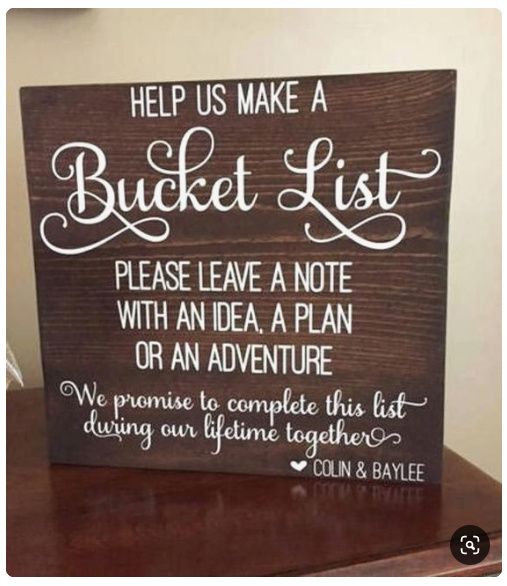 HELP US MAKE A
Bucket List
PLEASE LEAVE A NOTE
WITH AN IDEA, A PLAN
OR AN ADVENTURE
We promise to complete this list
during our lifetime together
♥ COLIN & BAYLEE